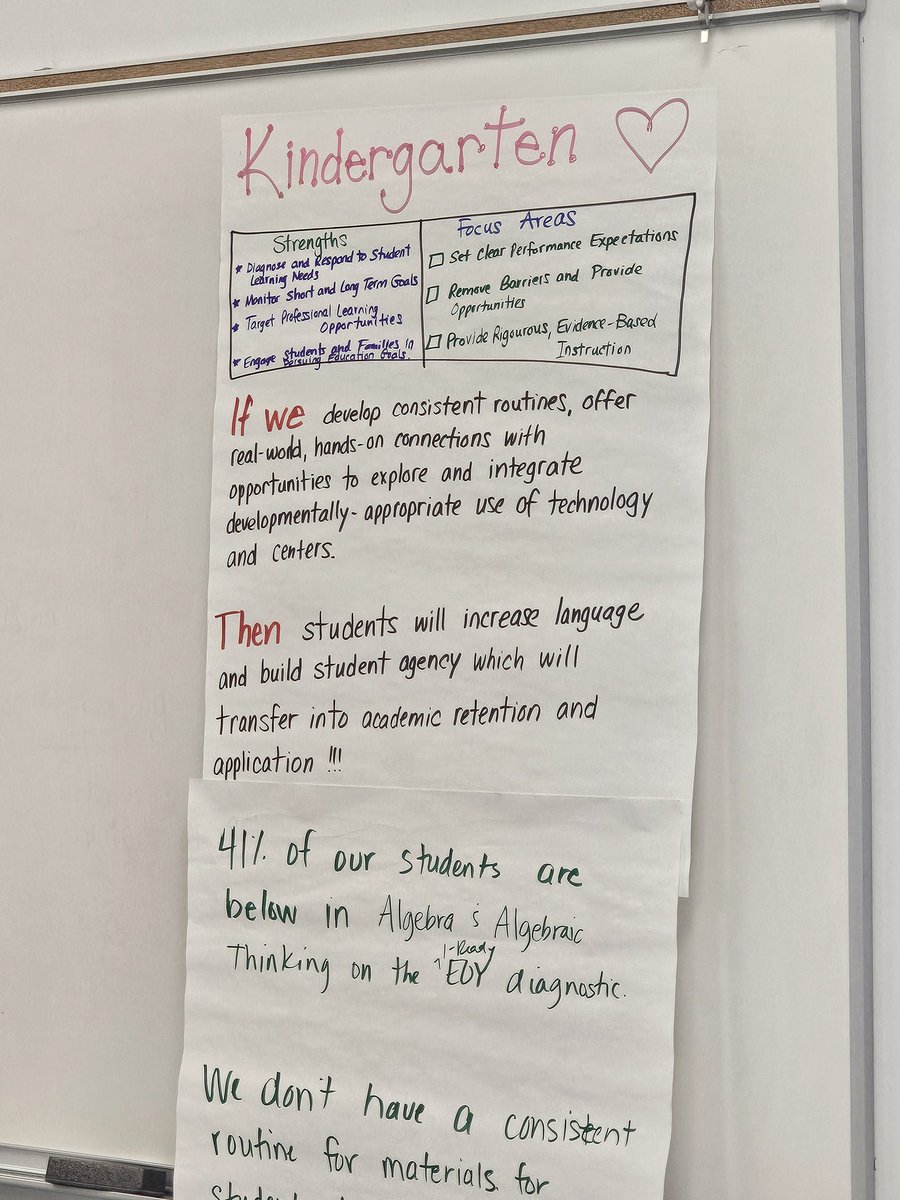 Kindergarten
Strengths
* Diagnose and Respond to Student
Learning Needs
* Monitor Short and Long Term Goals
* Target Professional Learning
Opportunities
* Engage Students and Families in
Persuing Education Goals.
Focus Areas
Set Clear Performance Expectations
Remove Barriers and Provide
Opportunities
Provide Rigourous, Evidence-Based
Instruction
If we develop consistent routines, offer
real-world, hands-on connections with
opportunities to explore and integrate
developmentally-appropriate use of technology
and centers.
Then students will increase language
and build student agency which will
transfer into academic retention and
application !!!
41% of our students are
below in Algebra & Algebraic
Thinking on the ^ I-Ready EOY diagnostic.
We don't have a consistent
routine for materials for